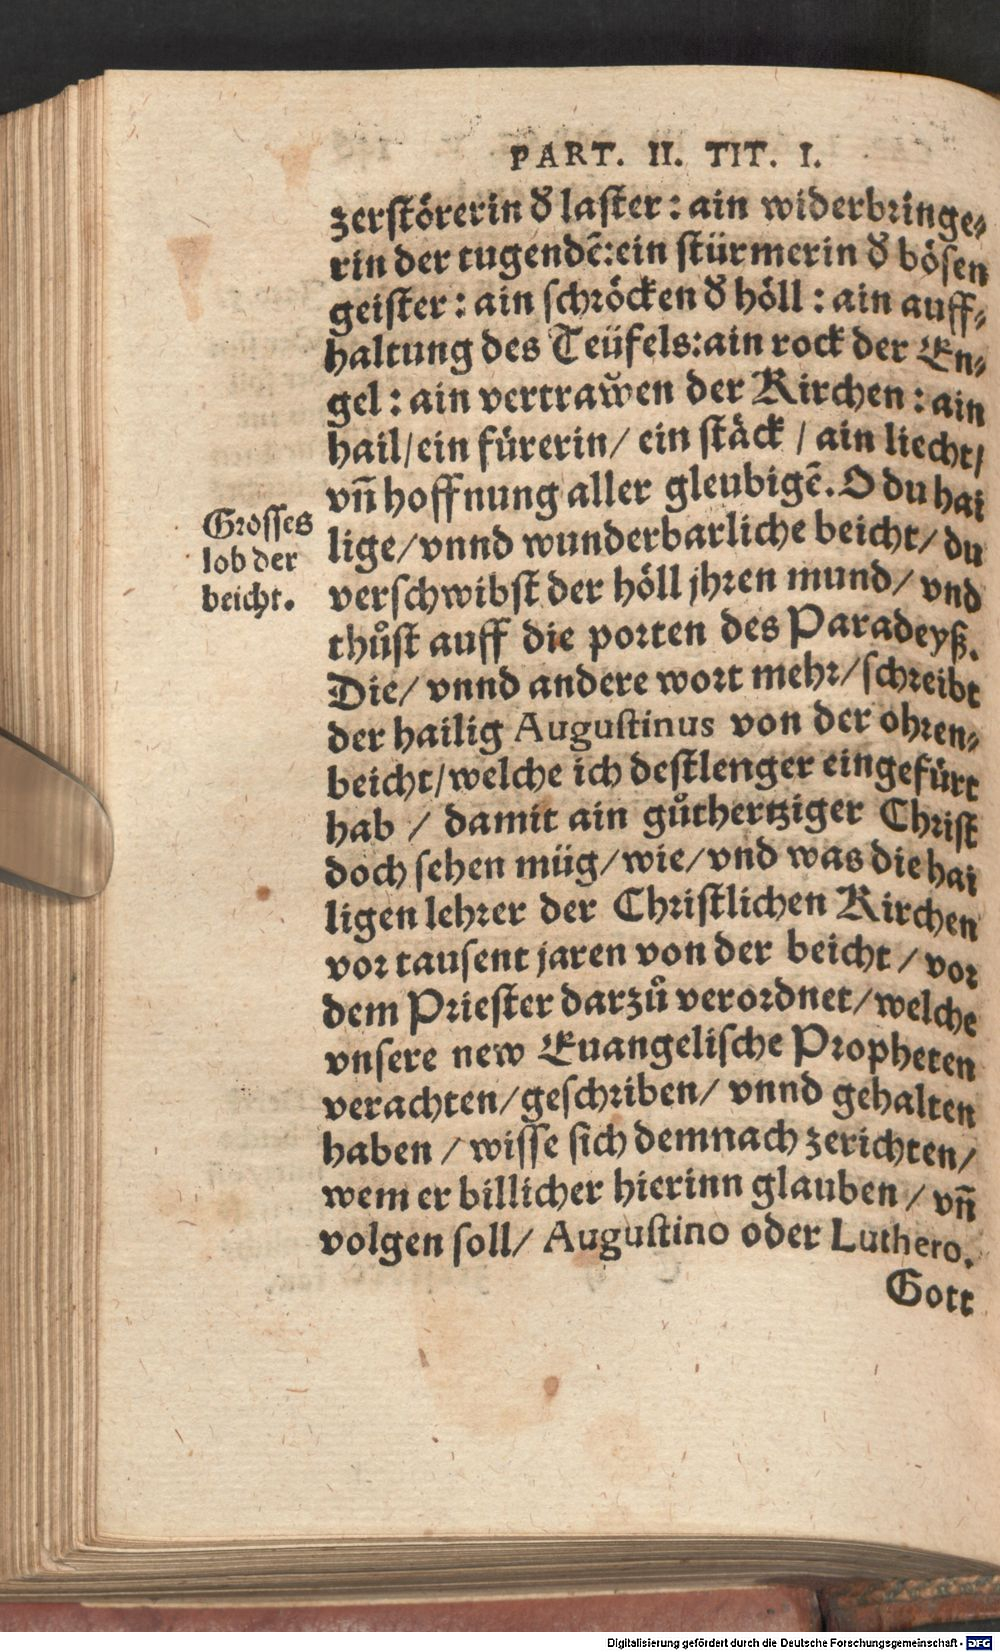 PART. II. TIT. I.
zerstörerin d̕ laster: ain widerbringe⸗
rin der tugendẽ: ein stürmerin d̕ bösen
geister: ain schröcken d̕ höll: ain auff⸗
haltung des Teüfels: ain rock der En⸗
gel: ain vertraẘen der Kirchen: ain
hail/ ein fürerin/ ein stäck / ain liecht/
vñ hoffnung aller gleubigẽ. O du hai
Grosses
lob der
beicht.
lige/ vnnd wunderbarliche beicht/ du
verschwibst der höll jhren mund/ vnd
thůst auff die porten des Paradeyß.
Die/ vnnd andere wort mehr/ schreibt
der hailig Augustinus von der ohren⸗
beicht/ welche ich destlenger eingefürt
hab / damit ain gůthertziger Christ
doch sehen müg/ wie/ vnd was die hai
ligen lehrer der Christlichen Kirchen
vor tausent jaren von der beicht / vor
dem Priester darzů verordnet/ welche
vnsere new Euangelische Propheten
verachten/ geschriben/ vnnd gehalten
haben / wisse sich demnach zerichten/
wem er billicher hierinn glauben / vñ
volgen soll/ Augustino oder Luthero.
Gott
Digitalisierung gefördert durch die Deutsche Forschungsgemeinschaft - DFG